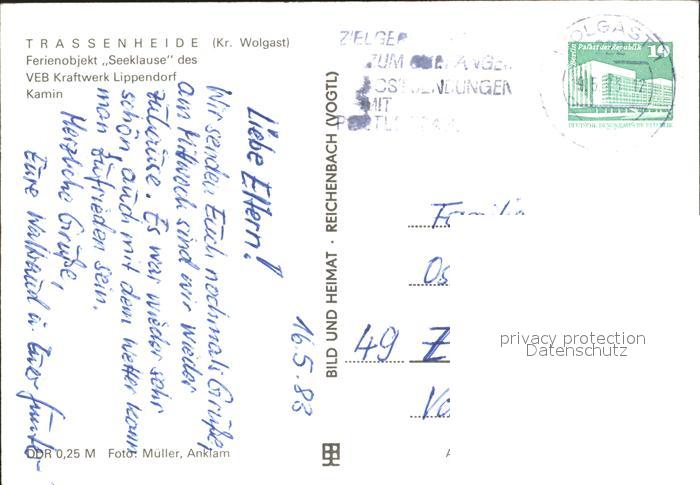 TRASSENHEIDE (Kr. Wolgast)
Ferienobjekt „Seeklause" des
VEB Kraftwerk Lippendorf
Kamin
16.5.83
Liebe Eltern!
Wir senden Euch nochmals Grüße,
am Mittwoch sind wir wieder
zuhause. Es war wieder sehr
schön auch mit dem Wetter kann
man zufrieden sein.
Herzliche Grüße,
Eure Waltraud u. Euer Günter
DDR 0,25 M Foto: Müller, Anklam
BILD UND HEIMAT · REICHENBACH (VOGTL)
ZUM
MIT
WOLGAST
Berlin Palast der Republik 10
DEUTSCHE DEMOKRATISCHE REPUBLIK
Familie
Os
49 Z
Vo
privacy protection
Datenschutz